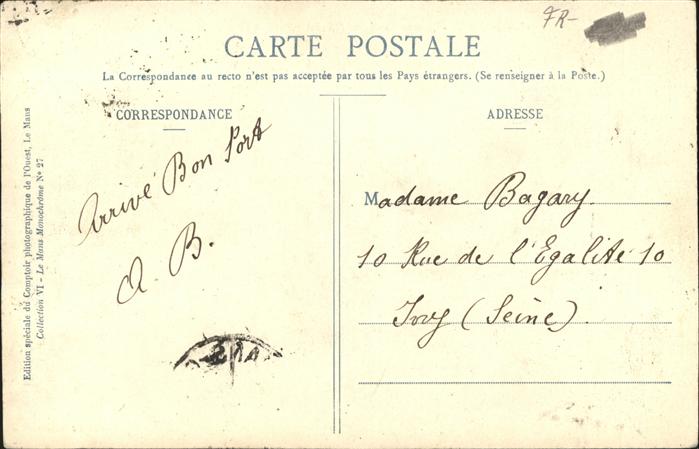 FR-
CARTE POSTALE
La Correspondance au recto n'est pas acceptée par tous les Pays étrangers. (Se renseigner à la Poste.)
CORRESPONDANCE
Arrivé Bon Port
A. B.
ADRESSE
Madame Bagary.
10 Rue de l'Egalité 10
Ivry (Seine).
Edition spéciale du Comptoir photographique de l'Ouest, Le Mans
Collection VI - Le Mans Monochrome Nº 27